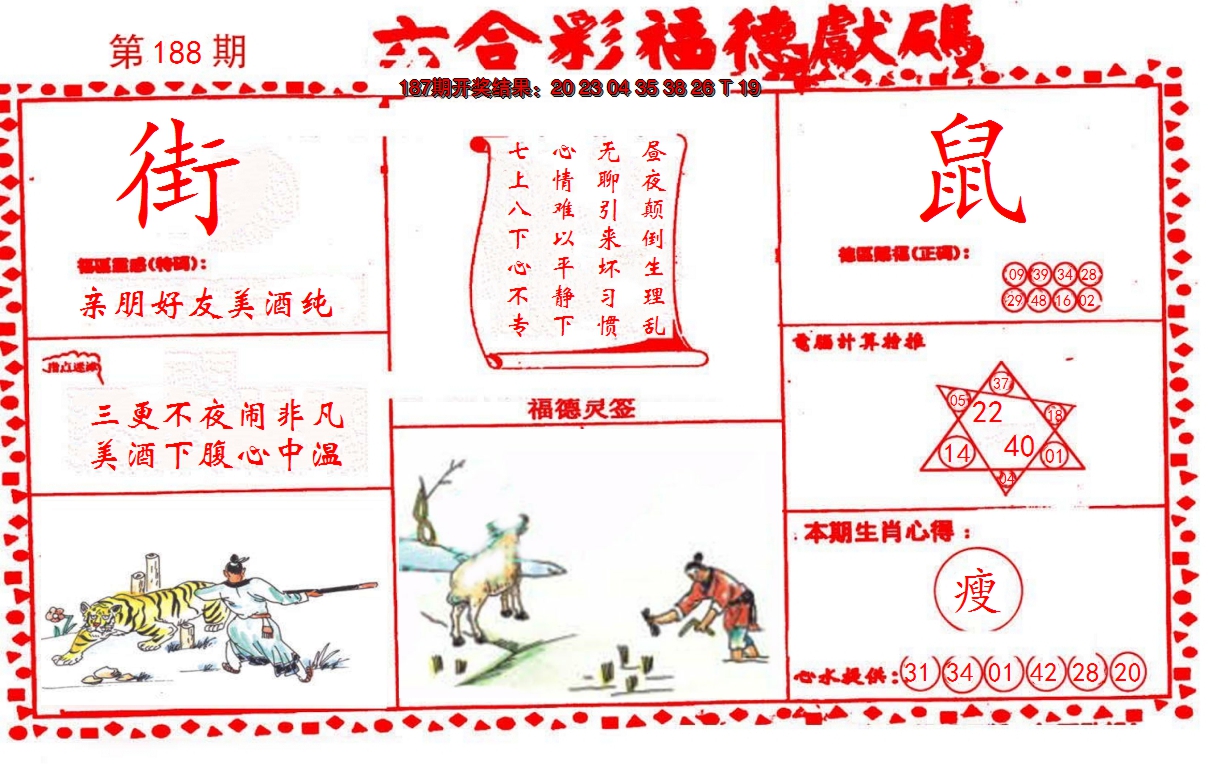 第188期
六合彩福德獻碼
187期开奖结果：20 23 04 35 38 26 T 19
街
福區靈感(特碼)：
亲朋好友美酒纯
指点迷津
三更不夜闹非凡
美酒下腹心中温
昼夜颠倒生理乱
无聊引来坏习惯
心情难以平静下
七上八下心不专
福德灵签
鼠
德區賜福(正碼)：
09 39 34 28
29 48 16 02
電腦計算抢推
37
05 22 18
14 40 01
04
本期生肖心得：
瘦
心水提供：31 34 01 42 28 20